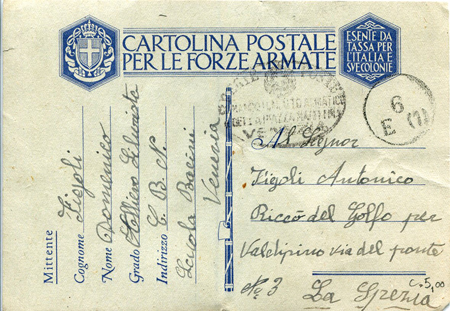 CARTOLINA POSTALE
PER LE FORZE ARMATE
ESENTE DA
TASSA PER
L'ITALIA
E SUE COLONIE
VENEZIA
6
E (1)
Mittente
Cognome Zigoli
Nome Domenico
Grado Allievo
Indirizzo C. B. N.
Scuola Bacini
Venezia
Al Signor
Zigoli Antonico
Riccò del Golfo per
Valdipino via del ponte
No 3
La Spezia
C. 5,00